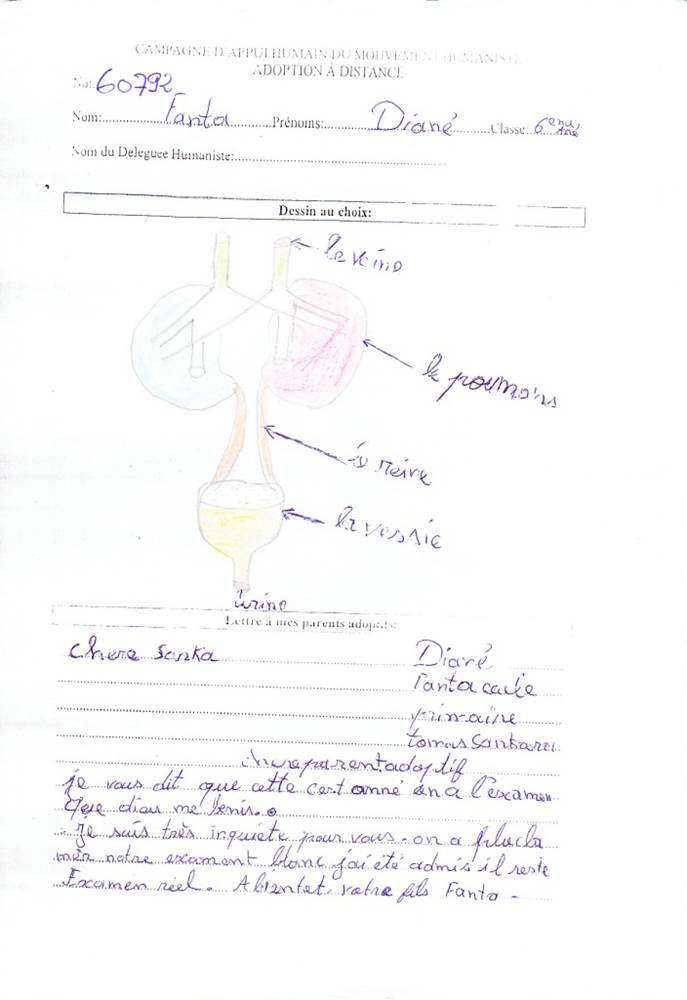 CAMPAGNE D'APPUI HUMAIN DU MOUVEMENT HUMANISTE
ADOPTION À DISTANCE
No: 60792
Nom: Fanta Prénoms: Diané Classe: 6
Nom du Deleguee Humaniste:
Dessin au choix:
le veine
le poumons
reine
la vessie
urine
Lettre à mes parents adoptifs:
Chere Sarka Diané
Fanta
primaire
tomas Sankara
parent adoptif
je vous dit que cette c'est anné on a l'examen
Que dieu me benis.
Je suis très inquiete pour vous. on a
notre exament blanc j'ai été admis il reste
Examen réel. Abientet. votre fils Fanta -